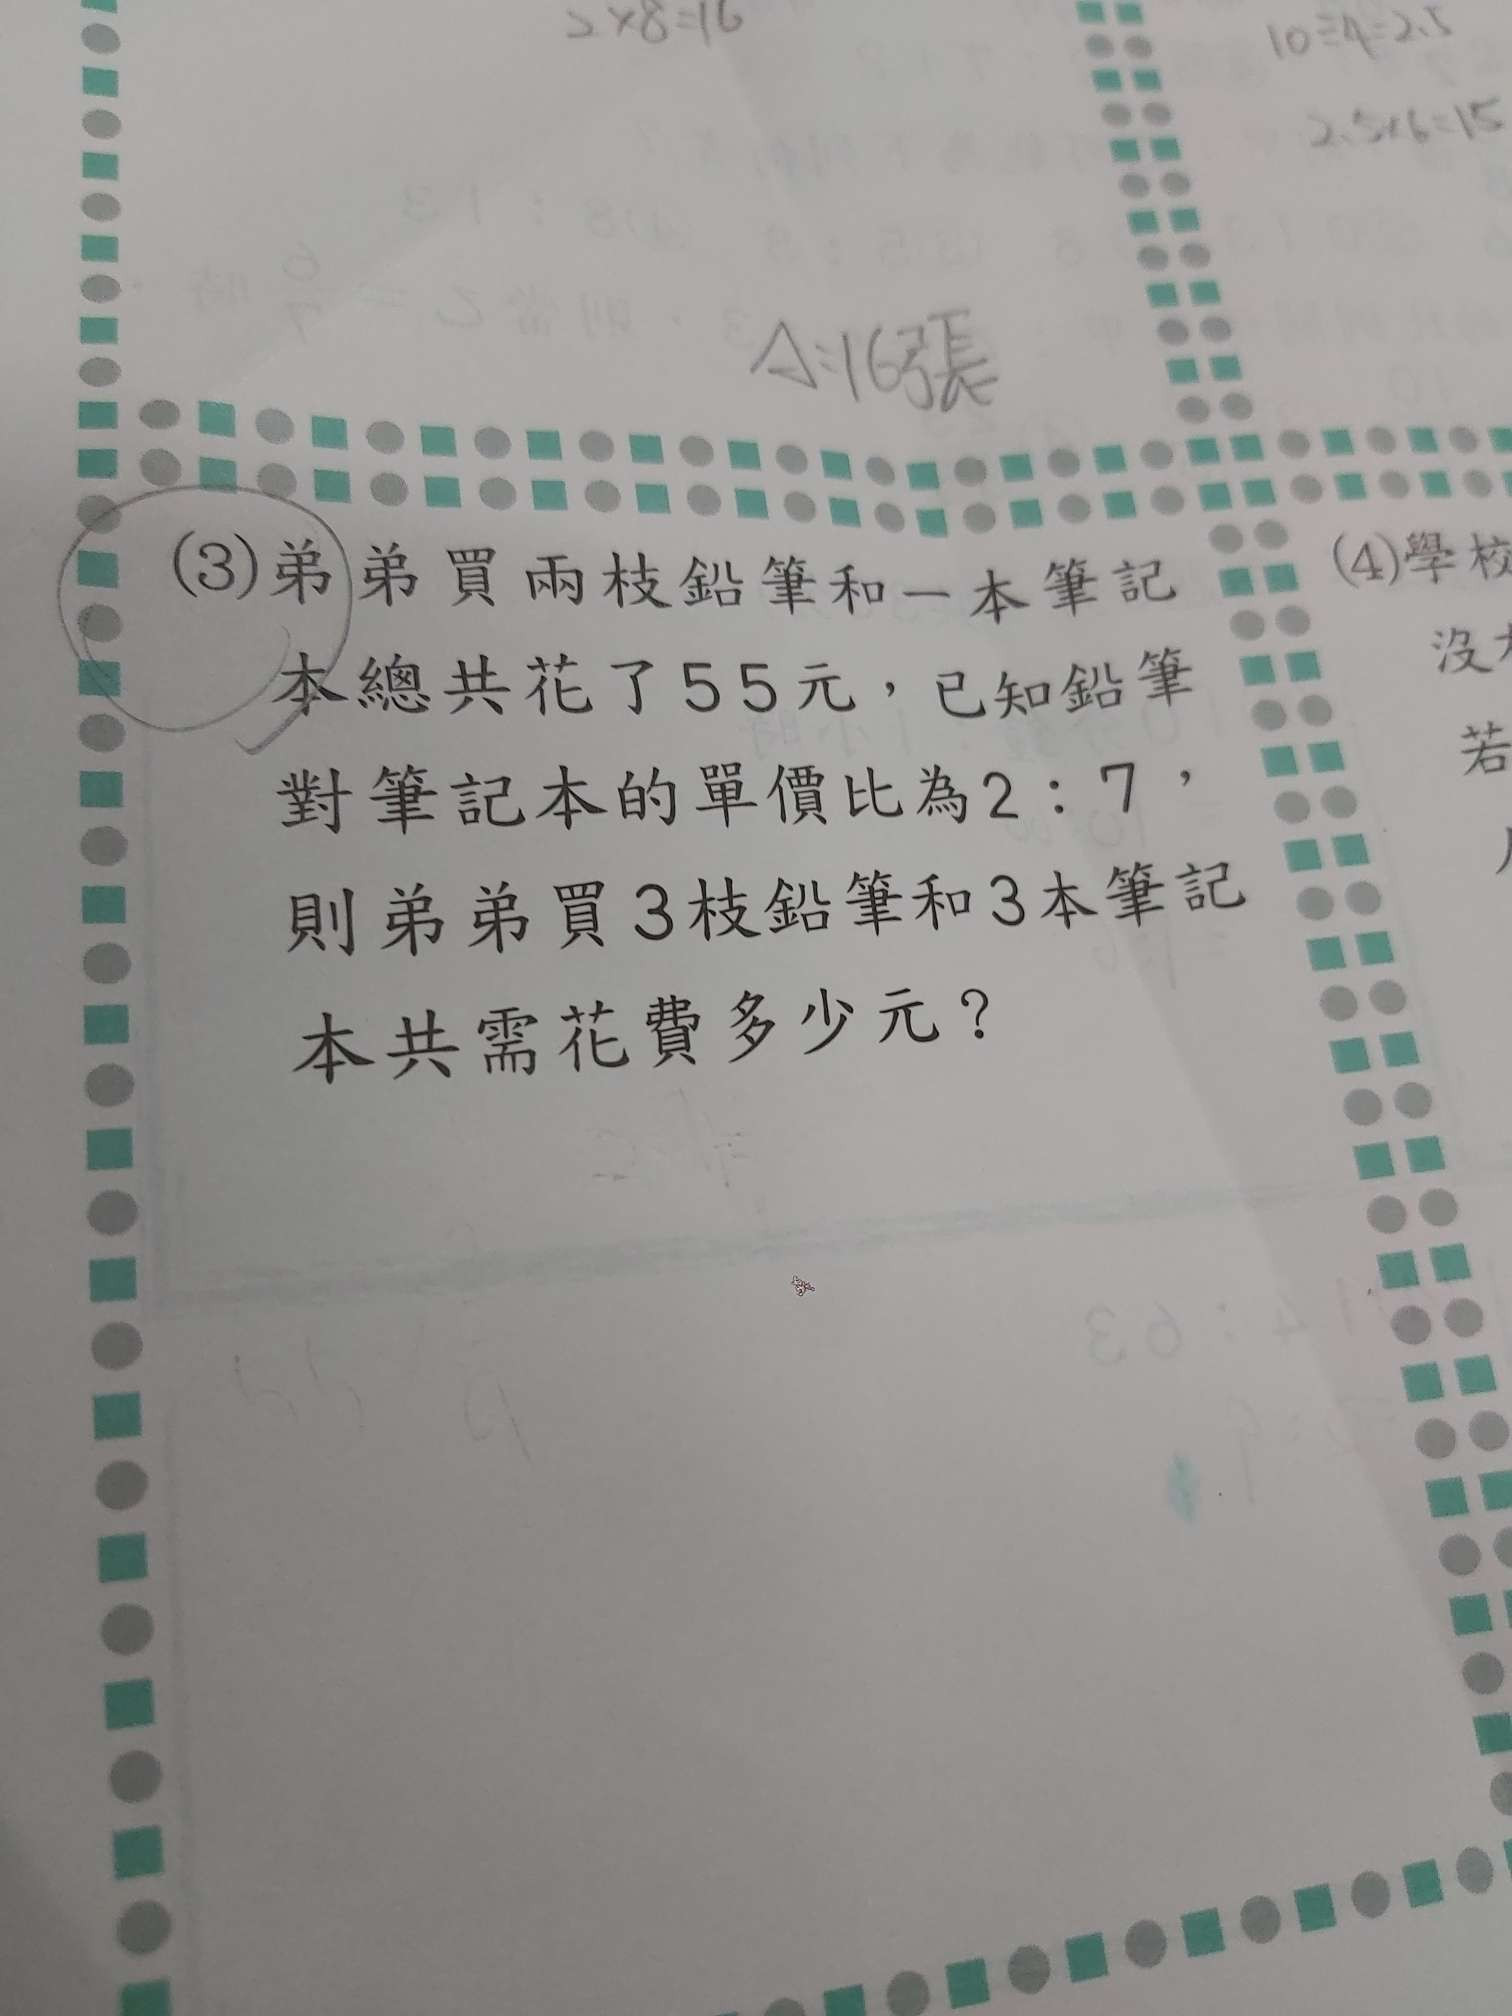 2×8=16
10÷4=2.5
2.5×6=15
A:16張
(3)弟弟買兩枝鉛筆和一本筆記
本總共花了55元，已知鉛筆
對筆記本的單價比為2：7，
則弟弟買3枝鉛筆和3本筆記
本共需花費多少元？
(4)學校
沒
若